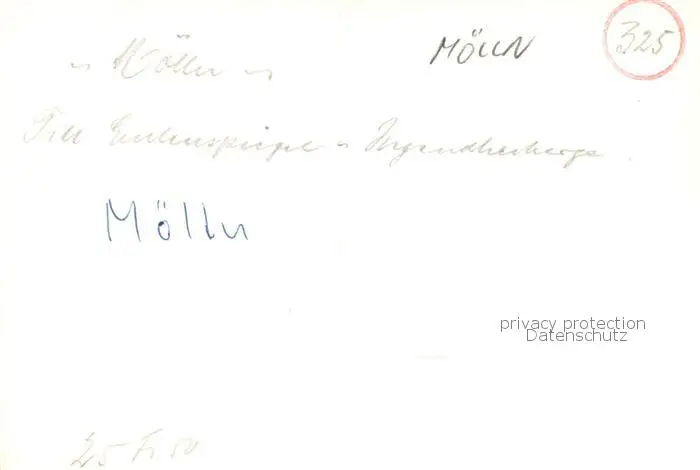 „ Mölln „ MÖLLN 325
Till Eulenspiegel - Jugendherberge.
Mölln
privacy protection
Datenschutz
25